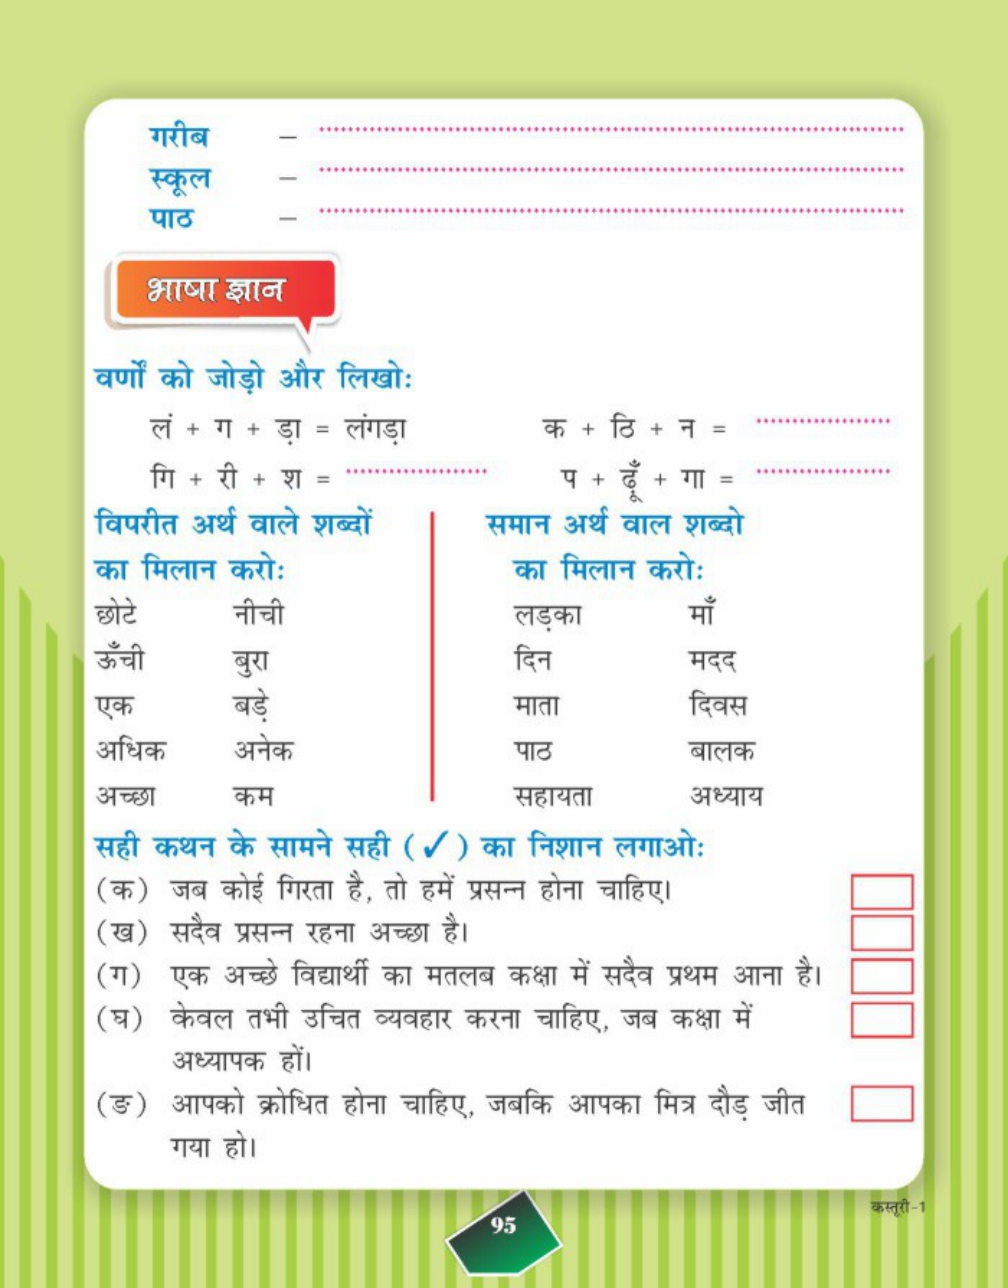 गरीब –
स्कूल –
पाठ –
भाषा ज्ञान
वर्णों को जोड़ो और लिखो:
लं + ग + ड़ा = लंगड़ा क + ठि + न =
गि + री + श = प + ढ़ूँ + गा =
विपरीत अर्थ वाले शब्दों
का मिलान करो:
छोटे नीची
ऊँची बुरा
एक बड़े
अधिक अनेक
अच्छा कम
समान अर्थ वाल शब्दो
का मिलान करो:
लड़का माँ
दिन मदद
माता दिवस
पाठ बालक
सहायता अध्याय
सही कथन के सामने सही (✓) का निशान लगाओ:
(क) जब कोई गिरता है, तो हमें प्रसन्न होना चाहिए।
(ख) सदैव प्रसन्न रहना अच्छा है।
(ग) एक अच्छे विद्यार्थी का मतलब कक्षा में सदैव प्रथम आना है।
(घ) केवल तभी उचित व्यवहार करना चाहिए, जब कक्षा में
अध्यापक हों।
(ङ) आपको क्रोधित होना चाहिए, जबकि आपका मित्र दौड़ जीत
गया हो।
95
कस्तूरी-1